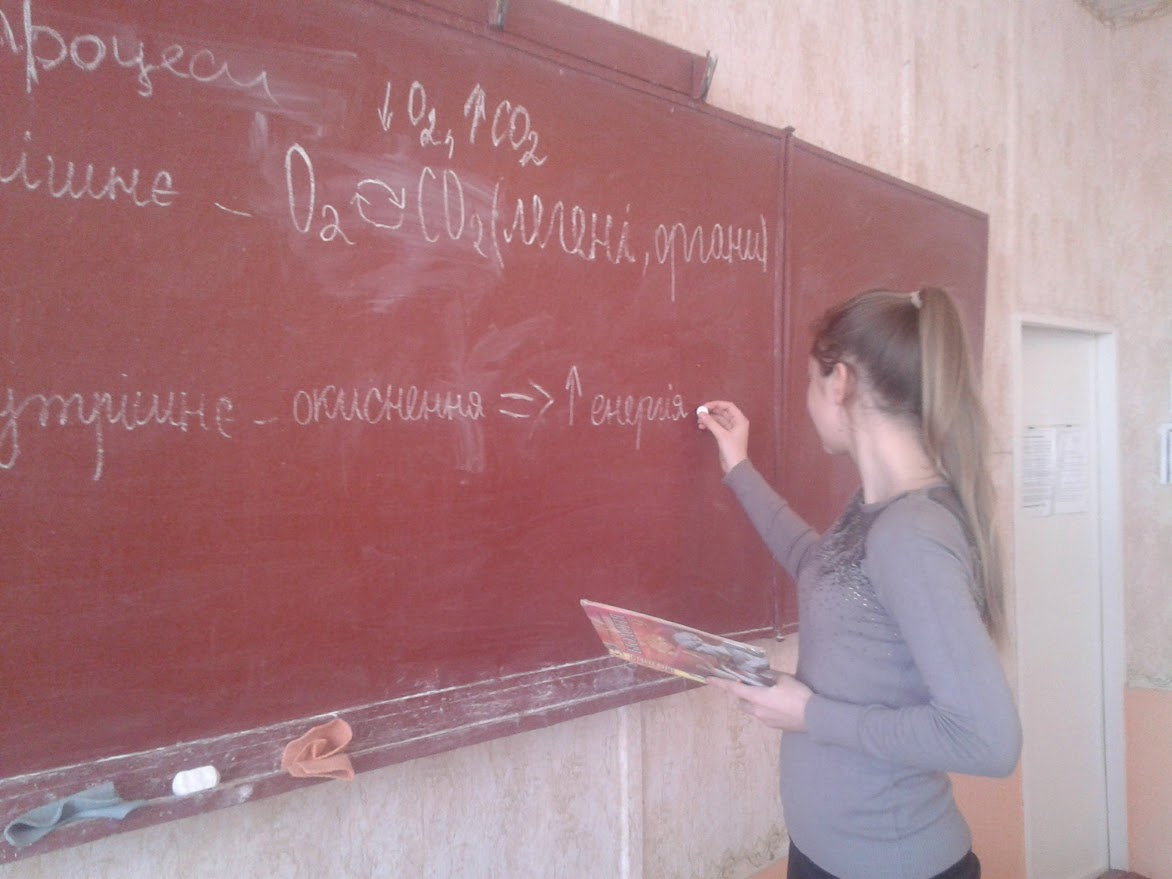 Процеси
↓O₂, ↑CO₂
ішнє – O₂ ⇄ CO₂ (легені, органи)
утрішнє – окиснення => ↑ енергія